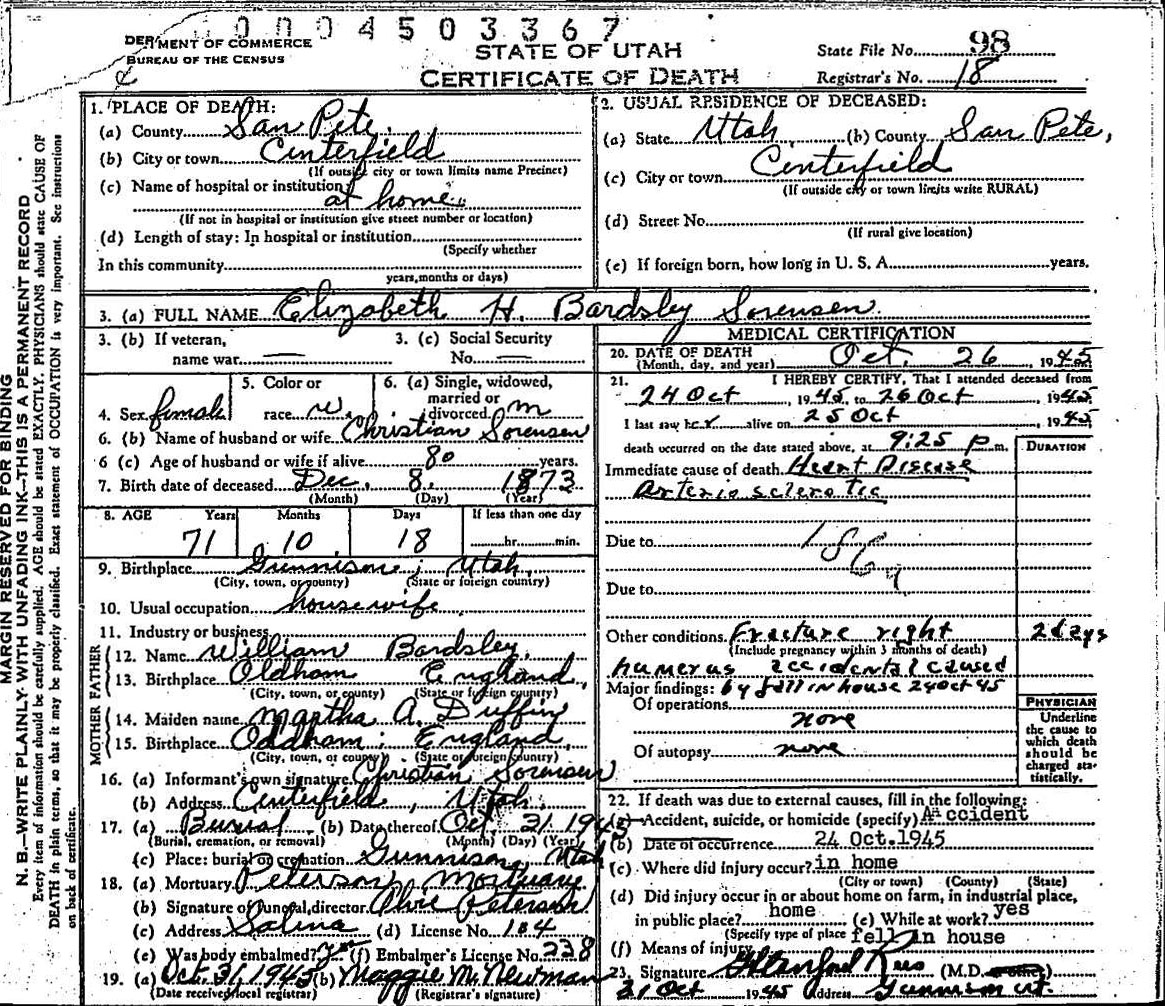 0 0 0 4 5 0 3 3 6 7
DEPARTMENT OF COMMERCE
BUREAU OF THE CENSUS
STATE OF UTAH
CERTIFICATE OF DEATH
State File No. 98
Registrar's No. 18
MARGIN RESERVED FOR BINDING
N. B.—WRITE PLAINLY WITH UNFADING INK—THIS IS A PERMANENT RECORD
Every item of information should be carefully supplied. AGE should be stated EXACTLY. PHYSICIANS should state CAUSE OF
DEATH in plain terms, so that it may be properly classified. Exact statement of OCCUPATION is very important. See instructions
on back of certificate.
1. PLACE OF DEATH:
(a) County San Pete,
(b) City or town Centerfield
(If outside city or town limits name Precinct)
(c) Name of hospital or institution
at home.
(If not in hospital or institution give street number or location)
(d) Length of stay: In hospital or institution
(Specify whether
In this community
years, months or days)
2. USUAL RESIDENCE OF DECEASED:
(a) State Utah (b) County San Pete,
(c) City or town Centerfield
(If outside city or town limits write RURAL)
(d) Street No.
(If rural give location)
(e) If foreign born, how long in U. S. A. years.
3. (a) FULL NAME Elizabeth H. Bardsley Sorensen
3. (b) If veteran,
name war —
3. (c) Social Security
No. —
4. Sex female
5. Color or
race w.
6. (a) Single, widowed,
married or
divorced m
6. (b) Name of husband or wife Christian Sorensen
6 (c) Age of husband or wife if alive 80 years.
7. Birth date of deceased Dec. 8. 1873
(Month) (Day) (Year)
8. AGE Years Months Days If less than one day
71 10 18 hr. min.
9. Birthplace Gunnison; Utah,
(City, town, or county) (State or foreign country)
10. Usual occupation housewife
11. Industry or business
FATHER
12. Name William Bardsley.
13. Birthplace Oldham England,
(City, town, or county) (State or foreign country)
MOTHER
14. Maiden name Martha A. Duffin
15. Birthplace Oldham; England,
(City, town, or county) (State or foreign country)
16. (a) Informant's own signature Christian Sorensen
(b) Address Centerfield, Utah.
17. (a) Burial (b) Date thereof Oct. 31. 1945
(Burial, cremation, or removal) (Month) (Day) (Year)
(c) Place: burial or cremation Gunnison, Utah
18. (a) Mortuary Peterson Mortuary
(b) Signature of funeral director Peterson
(c) Address Salina (d) License No. 104
(e) Was body embalmed? yes (f) Embalmer's License No. 238
19. (a) Oct. 31, 1945 (b) Maggie M. Newman
(Date received local registrar) (Registrar's signature)
MEDICAL CERTIFICATION
20. DATE OF DEATH Oct. 26, 1945
(Month, day, and year)
21. I HEREBY CERTIFY, That I attended deceased from
24 Oct, 1945, to 26 Oct, 1945
I last saw her alive on 25 Oct, 1945
death occurred on the date stated above, at 9:25 p.m.
DURATION
Immediate cause of death Heart Disease
Arterio sclerotic
Due to
Due to
Other conditions Fracture right 2 days
(Include pregnancy within 3 months of death)
humerus accidental caused
Major findings: by fall in house 24 Oct 45
Of operations
none
Of autopsy none
PHYSICIAN
Underline
the cause to
which death
should be
charged sta-
tistically.
22. If death was due to external causes, fill in the following:
(a) Accident, suicide, or homicide (specify) Accident
(b) Date of occurrence 24 Oct.1945
(c) Where did injury occur? in home
(City or town) (County) (State)
(d) Did injury occur in or about home on farm, in industrial place,
in public place? home (e) While at work? yes
(Specify type of place
(f) Means of injury fell in house
23. Signature Stanford Rees (M.D.
31 Oct 1945 Address Gunnison Ut.